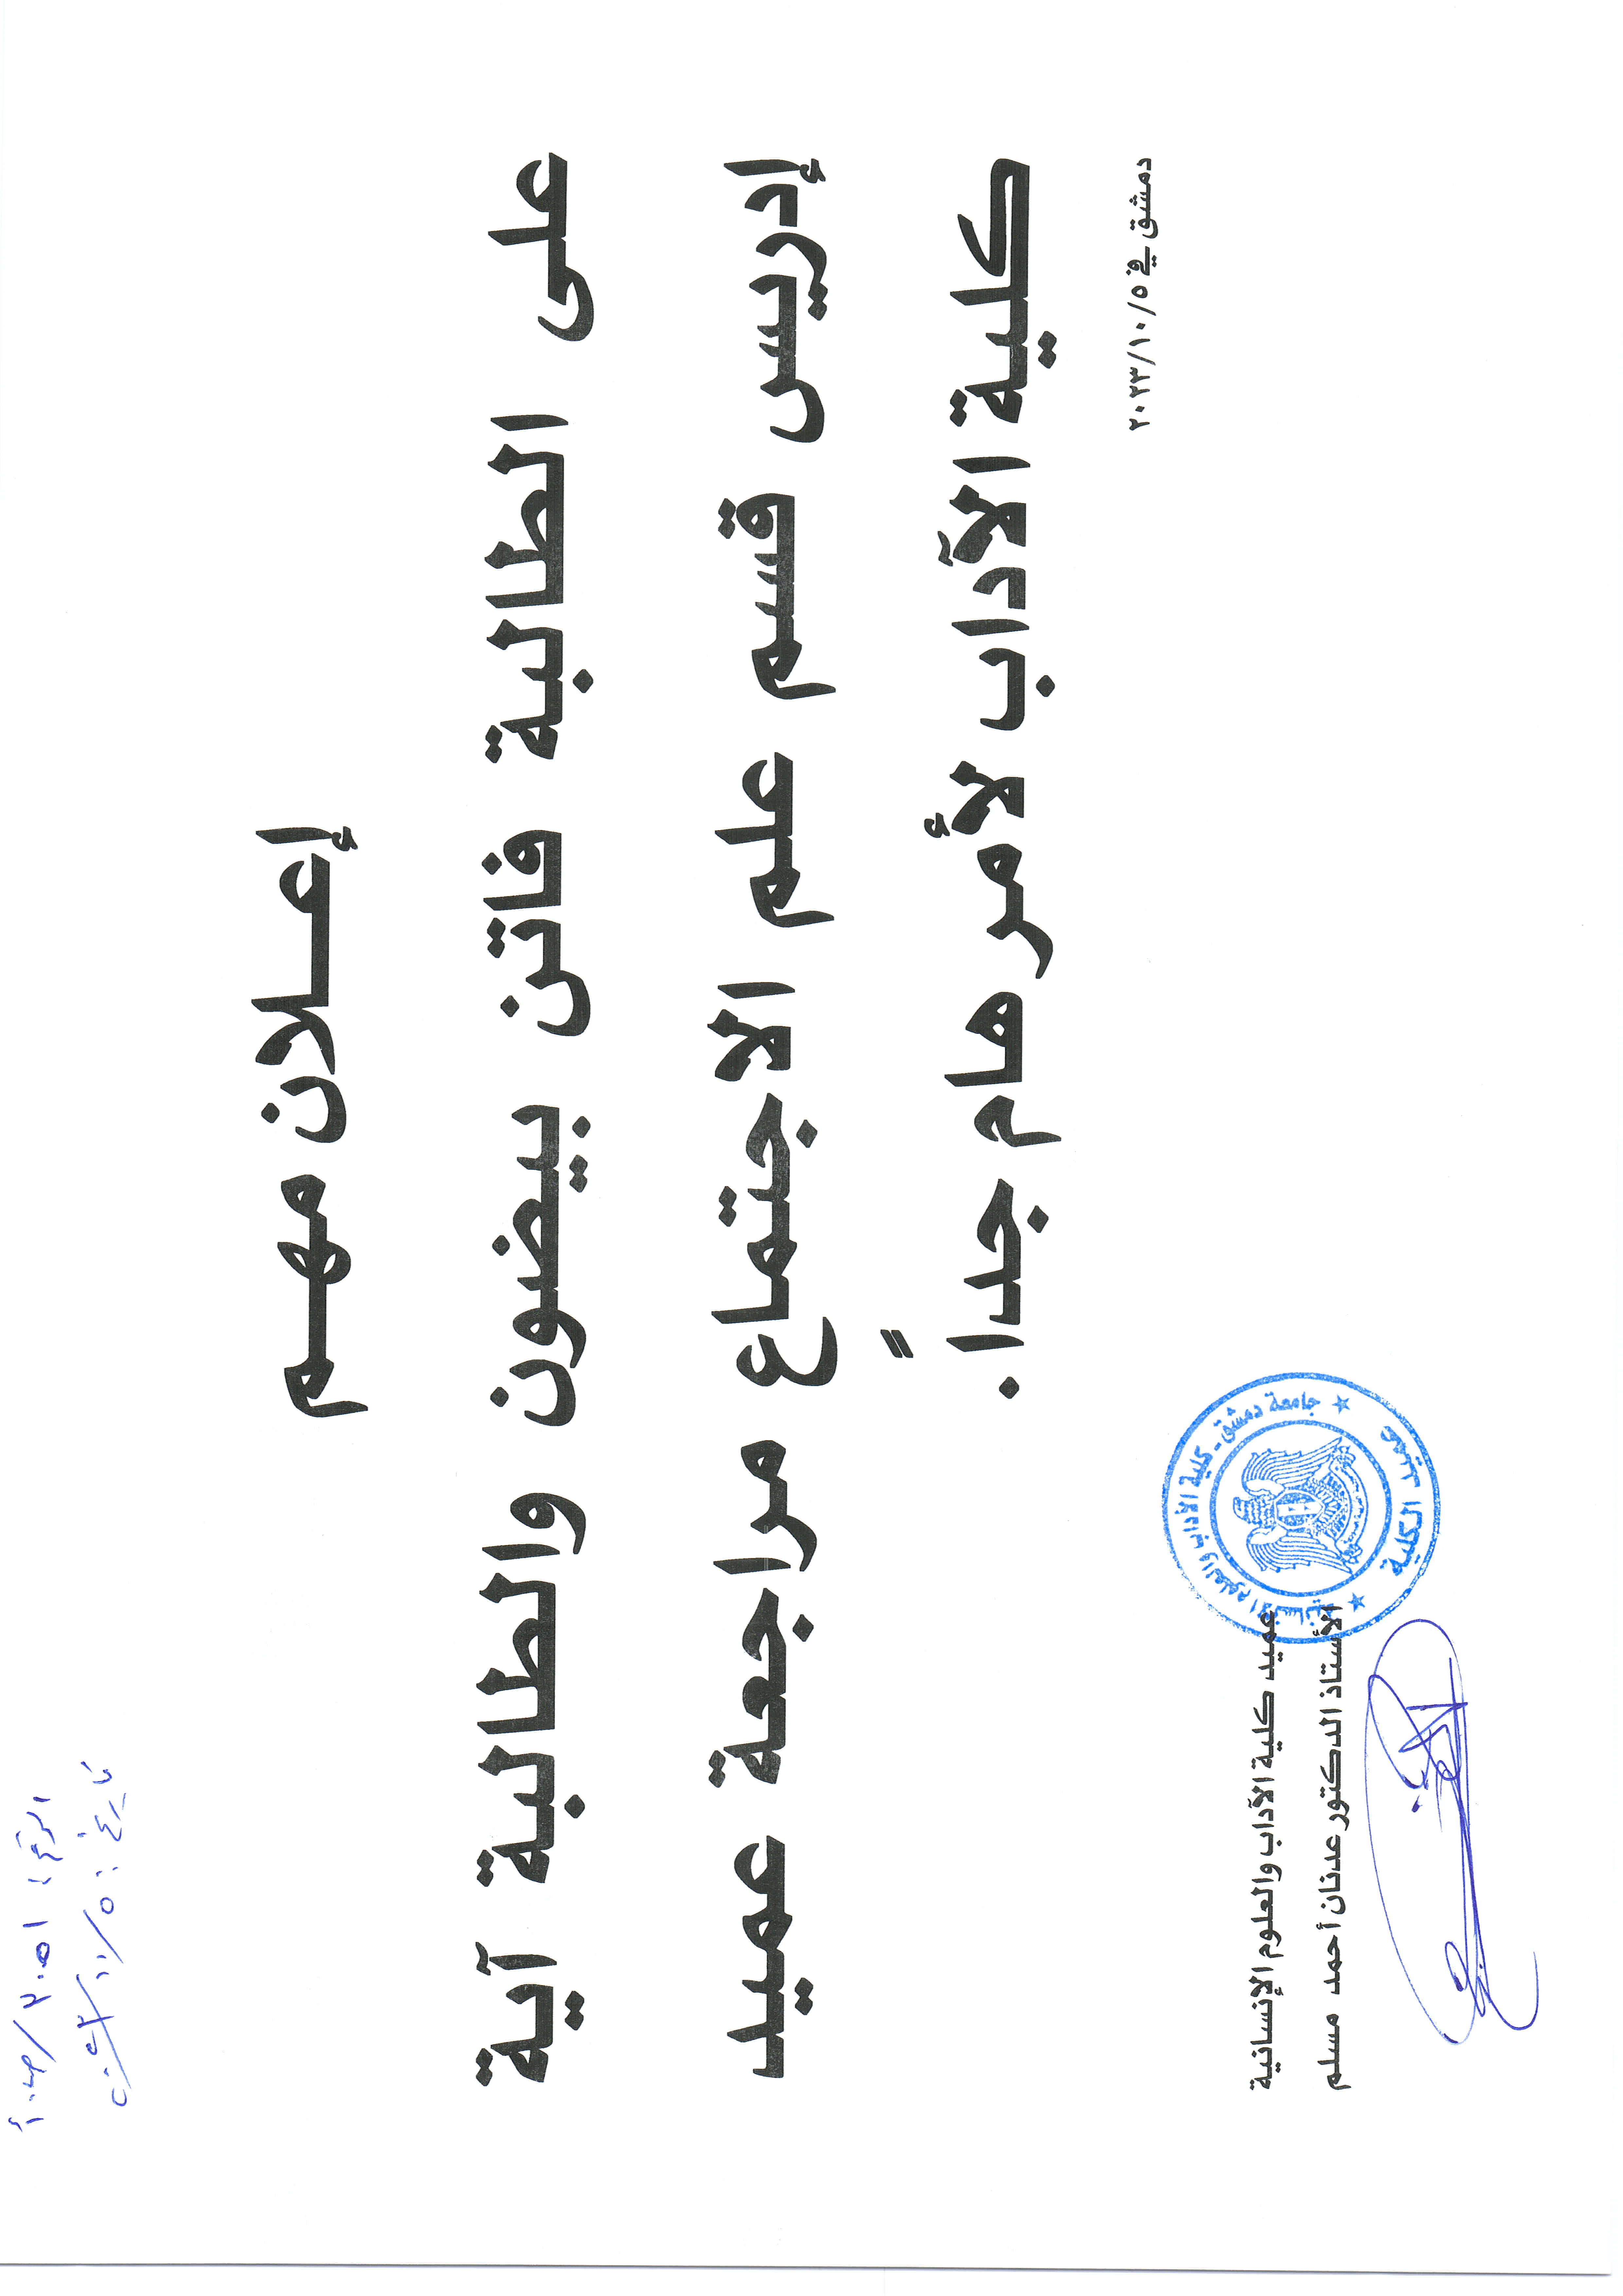 الرقم: ٢٠٥١/ص.آ
تاريخ: ٥/١٠/٢٠٢٣
إعلان مهم
على الطالبة فاتن بيضون والطالبة آية
إدريس قسم علم الاجتماع مراجعة عميد
كلية الآداب لأمر هام جداً.
دمشق في ٢٠٢٣/١٠/٥
عميد كلية الآداب والعلوم الإنسانية
الأستاذ الدكتور عدنان أحمد مسلم
جامعة دمشق - كلية الآداب والعلوم الإنسانية